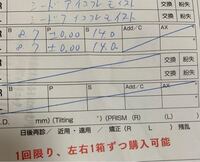 シードアイコフレモイスト
交換 紛失
シードアイコフレモイスト
B P S Add/C AX
8.7 ±0.00 14.0
交換 紛失
8.7 ±0.00 14.0
交換 紛失
B P S Add/C AX
交換 紛失
交換 紛失
mm) (Tilting ) (PRISM (R) (L)
日後再診 / 近用・遠用 矯正(R L) 残乱
1回限り、左右1箱ずつ購入可能